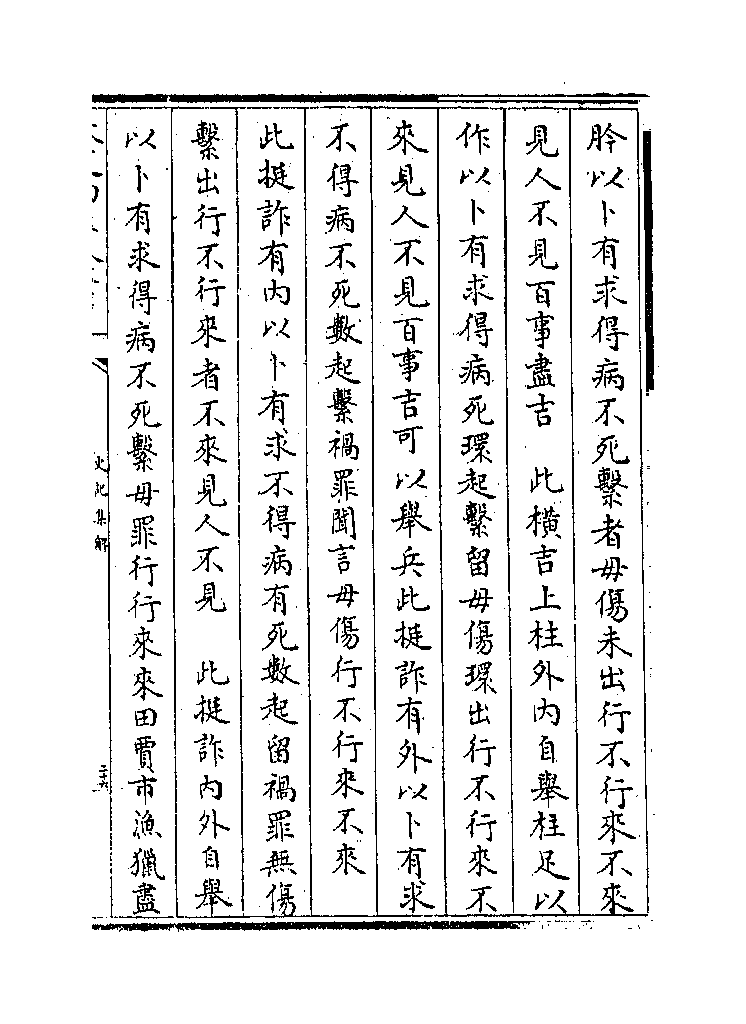 肣以卜有求得病不死繫者毋傷未出行不行來不來
見人不見百事盡吉　此橫吉上柱外內自舉柱足以
作以卜有求得病死環起繫留毋傷環出行不行來不
來見人不見百事吉可以舉兵此挺詐有外以卜有求
不得病不死數起繫禍罪聞言毋傷行不行來不來
此挺詐有內以卜有求不得病有死數起留禍罪無傷
繫出行不行來者不來見人不見　此挺詐內外自舉
以卜有求得病不死繫毋罪行行來來田賈市漁獵盡
史記集解
二十六